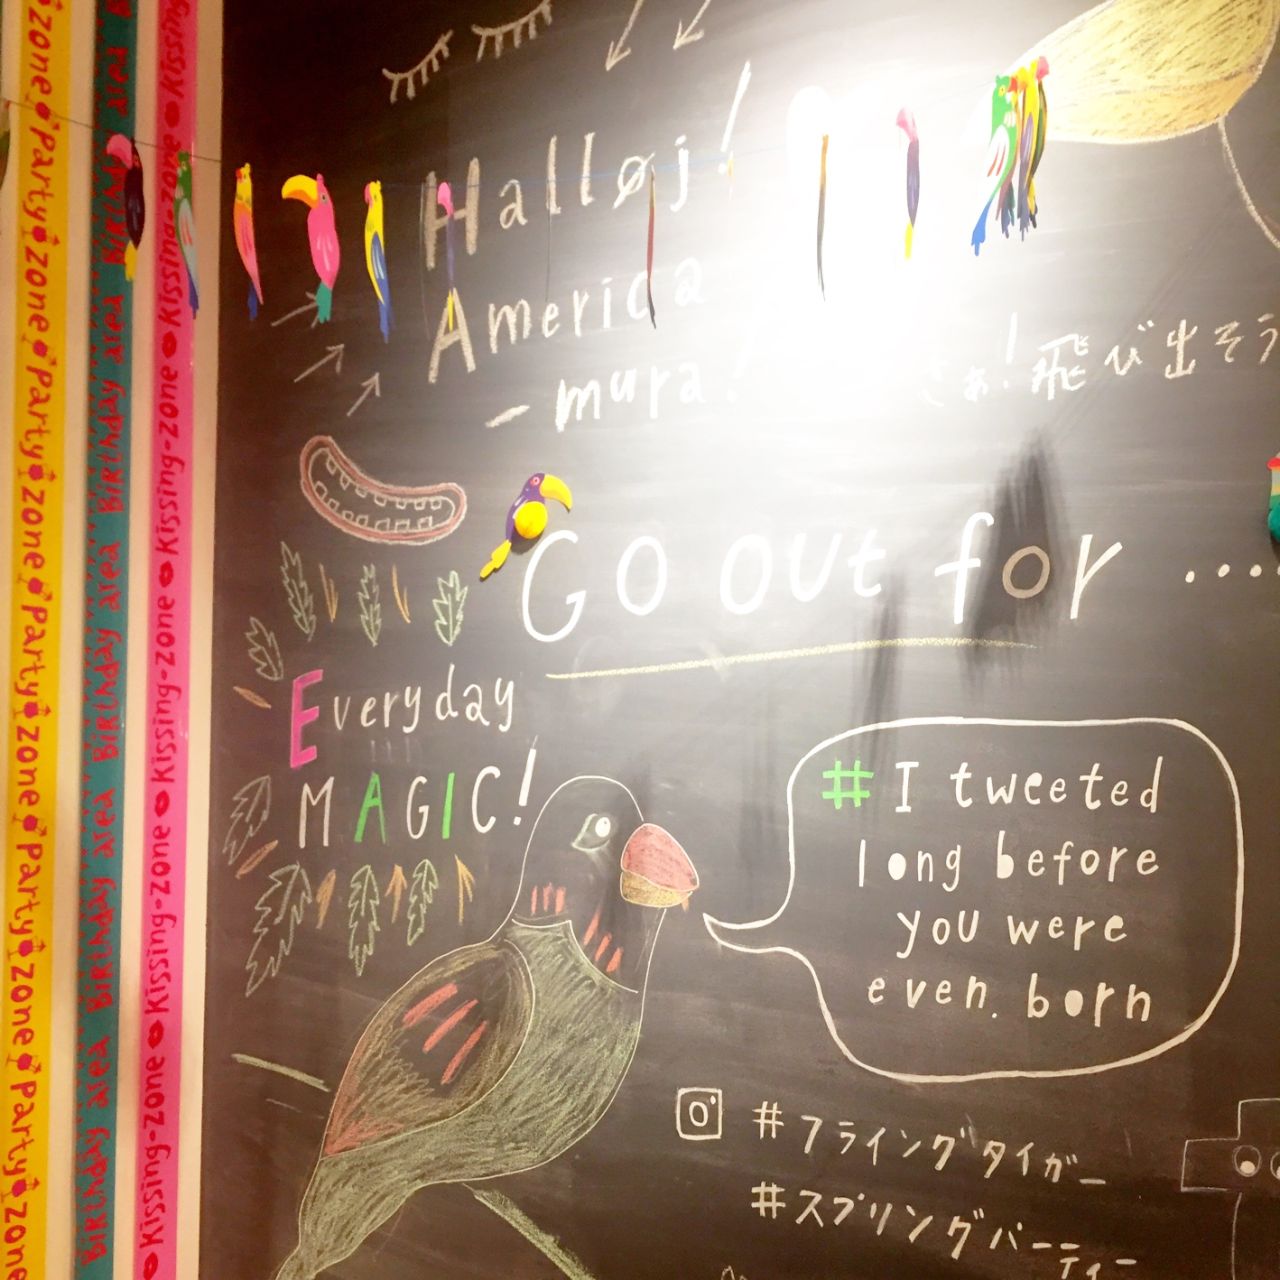 Halløj!
America
-mura!
さぁ!飛び出そう
Go out for ....
Everyday
MAGIC!
# I tweeted
long before
you were
even. born
#フライングタイガー
#スプリングパーティー
Party zone Party zone Party zone Party zone Party zone Party zone
Birthday area Birthday area Birthday area Birthday area Birthday area
Kissing-zone Kissing-zone Kissing-zone Kissing-zone Kissing-zone